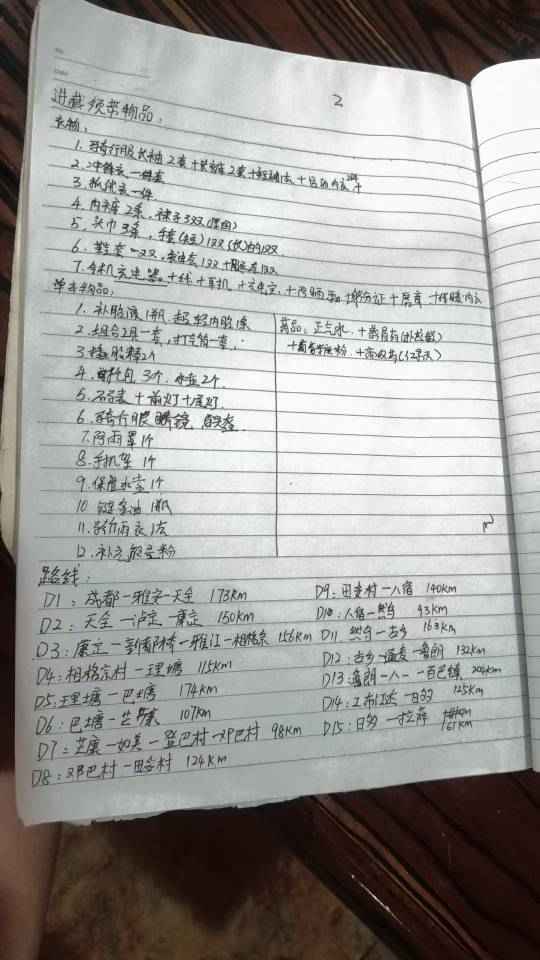 2
进藏须带物品:
衣物:
1. 骑行服长袖2套+长裤2套+短袖1
2. 冲锋衣一
3. 抓绒衣一件.
4. 内裤2条, 袜子3双
5. 头巾3条, 手套 1双
6. 鞋套一双,
7. 手机充电器+线+耳机 +充电宝, +身份证+
单车物品:
1. 补胎液1瓶, 超轻内胎
2. 组合工具一套, 打气筒一套.
3. 撬胎棒2个
4. 包3个. 水壶2个
5. 码表+前灯+尾灯
6. 骑行眼镜
7. 防雨罩1个
8. 手机 1个
9. 保温水壶1个
10 链条油1瓶
11. 雨衣1
12. 补充能量粉
药品: 正气水,
路线:
D1: 成都-雅安-天全 173km
D2: 天全-泸定-康定 150km
D3: 康定-新都桥-雅江-相格宗 156km
D4: 相格宗村-理塘 115km
D5: 理塘-巴塘 174km
D6: 巴塘-芒康 107km
D7: 芒康-如美-登巴村-邓巴村 98km
D8: 邓巴村-田妥村 124km
D9: 田妥村-八宿 140km
D10: 八宿-然乌 93km
D11 然乌-古乡 163km
D12: 古乡-通麦-鲁朗 132km
D13: 鲁朗-八一-百巴镇
D14: 工布江达-日多 125km
D15: 日多-拉萨 165km